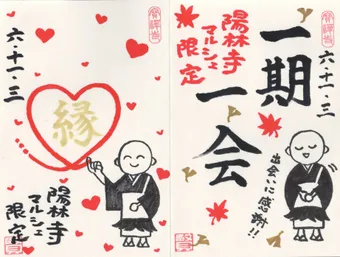 六・十一・三
縁
陽林寺
マルシェ
限定
陽林寺
マルシェ
限定
一期
一会
六・十一・三
出会いに感謝!!